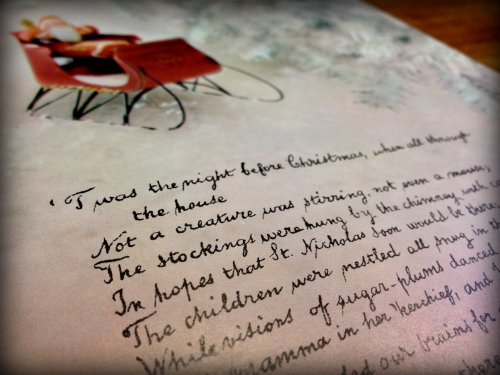 'Twas the night before Christmas, when all through
the house
Not a creature was stirring, not even a mouse,
The stockings were hung by the chimney with
In hopes that St. Nicholas soon would be there
The children were nestled all snug in
While visions of sugar-plums danced
mamma in her 'kerchief, and
our brains for